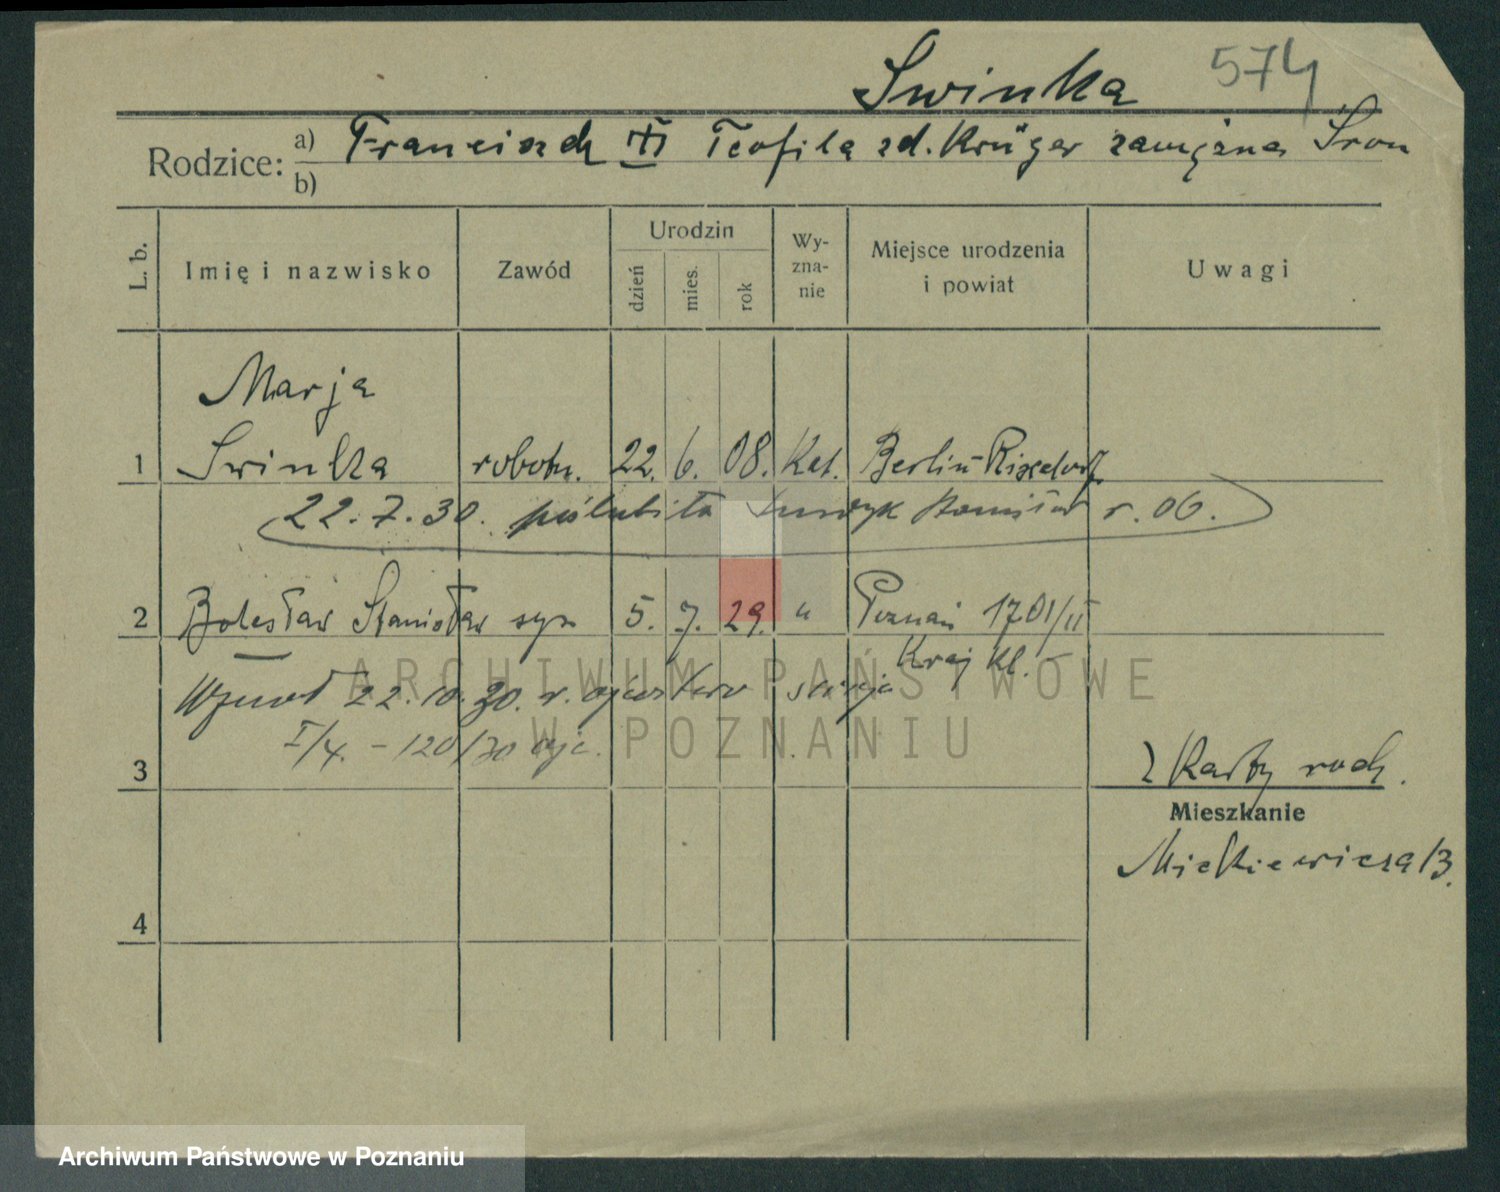 Swinka 574
Rodzice: a) Franciszek Teofila zd. Krüger zamężna
b)
L. b. Imię i nazwisko Zawód Urodzin dzień mies. rok Wy-zna-nie Miejsce urodzenia i powiat Uwagi
Marja
1 Swinka robotn. 22. 6. 08. Kat. Berlin-Rixdorf
22.7.30. poślubiła r. 06.
2 Bolesław Stanisław syn 5. 7. 29. " Poznań 1701/II
Kraj kl.
22.10.30. r.
I/4. - 120/30
3
Z Karty rodz.
Mieszkanie
Mickiewicza 13.
4
ARCHIWUM PAŃSTWOWE
W POZNANIU
Archiwum Państwowe w Poznaniu